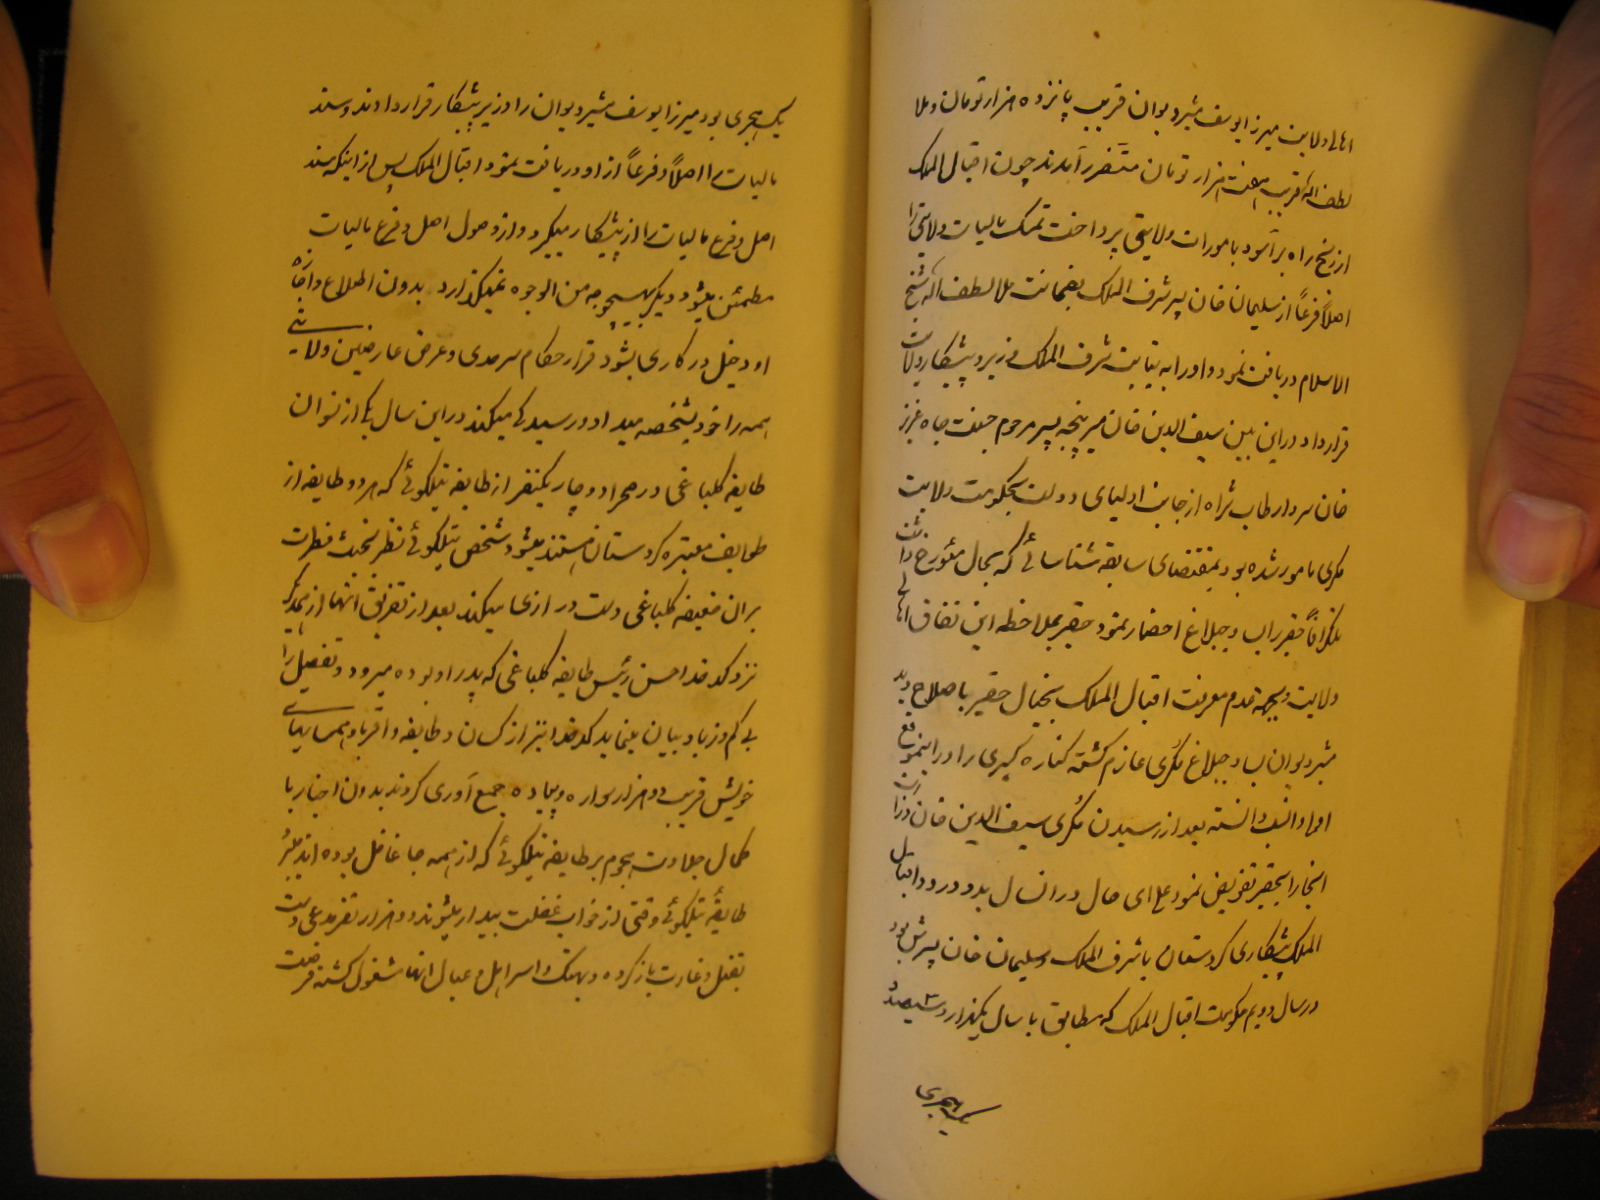 اهالی ولایت میرزا یوسف مشیر دیوان قریب پانزده هزار تومان و ملا
لطف اله قریب هفت هزار تومان متضرر آمدند چون اقبال الملک
از رنج راه برآسود بامورات ولایتی پرداخت تمسک مالیات ولایتی را
اصلاً فرعاً از سلیمان خان پسر شرف الملک بضمانت ملا لطف اله شیخ
الاسلام دریافت نمود و او را به نیابت شرف الملک وزیر و پیشکار ولایت
قرار داد در این بین سیف الدین خان میرپنجه پسر مرحوم جنت جاه عزیز
خان سردار طاب ثراه از جانب اولیای دولت بحکومت ولایت
مکری مامور شده بود بمقتضای سابقه شناسائی که بحال مؤرخ داشت
تلگرافاً حقیر را بساوجبلاغ احضار نمود حقیر بملاحظه این نفاق اهالی
ولایت و بجهة عدم معرفت اقبال الملک بخیال حقیر با صلاح دید
مشیر دیوان بساوجبلاغ مکری عازم گشته کناره گیری را در این موقع
اولی و انسب دانسته بعد از رسیدن مکری سیف الدین خان وزارت
آنجا را بحقیر تفویض نمود علی ای حال در انسال بدو ورود اقبال
الملک پیشکاری کردستان با شرف الملک و سلیمان خان پسرش بود
در سال دویم حکومت اقبال الملک که مطابق با سال یکهزار و سیصد و
یک هجری
یک هجری بود میرزا یوسف مشیر دیوان را وزیر و پیشکار قرار دادند و سند
مالیات را اصلاً و فرعاً از او دریافت نمود اقبال الملک پس از اینکه سند
اصل و فرع مالیات را از پیشکار میگیرد و از وصول اصل و فرع مالیات
مطمئن میشود دیگر بهیچوجه من الوجوه نمیگذارد بدون اطلاع و اجازه
او دخیل در کاری بشود قرار حکام سرحدی و عرض عارضین ولایتی
همه را خود بشخصه میداد و رسیدگی میکند در این سال یکی از نسوان
طایفه گلباغی در صحرا دوچار یکنفر از طایفه تیلکوئی که هر دو طایفه از
طوایف معتبره کردستان هستند میشود شخص تیلکوئی نظر بخبث فطرت
بر آن ضعیفه گلباغی دست درازی میکند بعد از تفریق آنها از همدیگر
نزد کدخدا حسن رئیس طایفه گلباغی که پدر او بوده میرود و تفصیل را
بی کم و زیاد بیان مینماید کدخدا نیز از کسان و طایفه و اقربا و همسایهای
خویش قریب دو هزار سواره و پیاده جمع آوری کردند بدون اخبار با
کمال جلادت هجوم بر طایفه تیلکوئی که از همه جا غافل بوده اند میبرد
طایفهٔ تیلکوئی وقتی از خواب غفلت بیدار میشوند دو هزار نفر مدعی دست
بقتل و غارت باز کرده و بهتک و اسر اهل و عیال آنها مشغول گشته فرصت